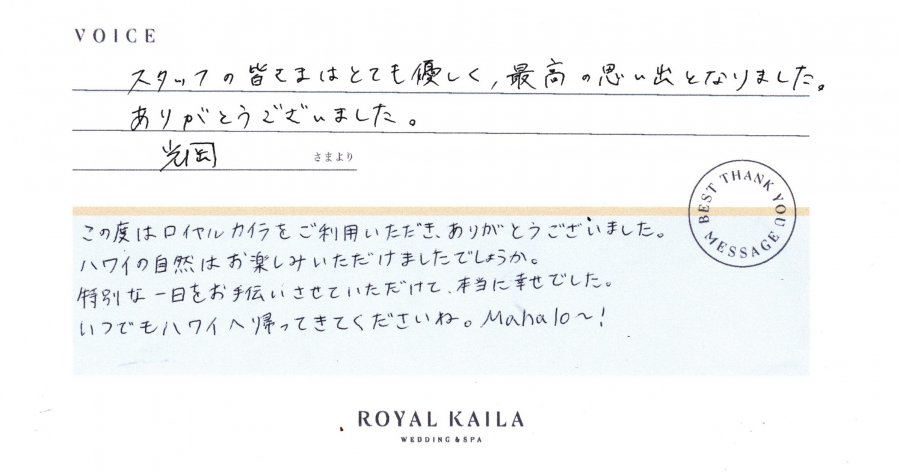 VOICE
スタッフの皆さまはとても優しく,最高の思い出となりました。
ありがとうございました。
光岡 さまより
BEST THANK YOU MESSAGE
この度はロイヤルカイラをご利用いただき、ありがとうございました。
ハワイの自然はお楽しみいただけましたでしょうか。
特別な一日をお手伝いさせていただけて、本当に幸せでした。
いつでもハワイへ帰ってきてくださいね。Mahalo~!
ROYAL KAILA
WEDDING & SPA